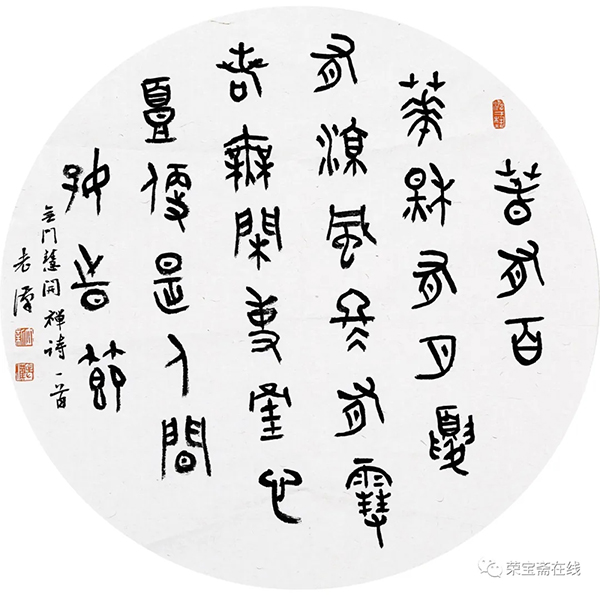 春有百
華秋有月夏
有涼風冬有雪
若無閑事挂心
頭便是人間
好時節
無門慧開禪詩一首
老
荣宝斋在线